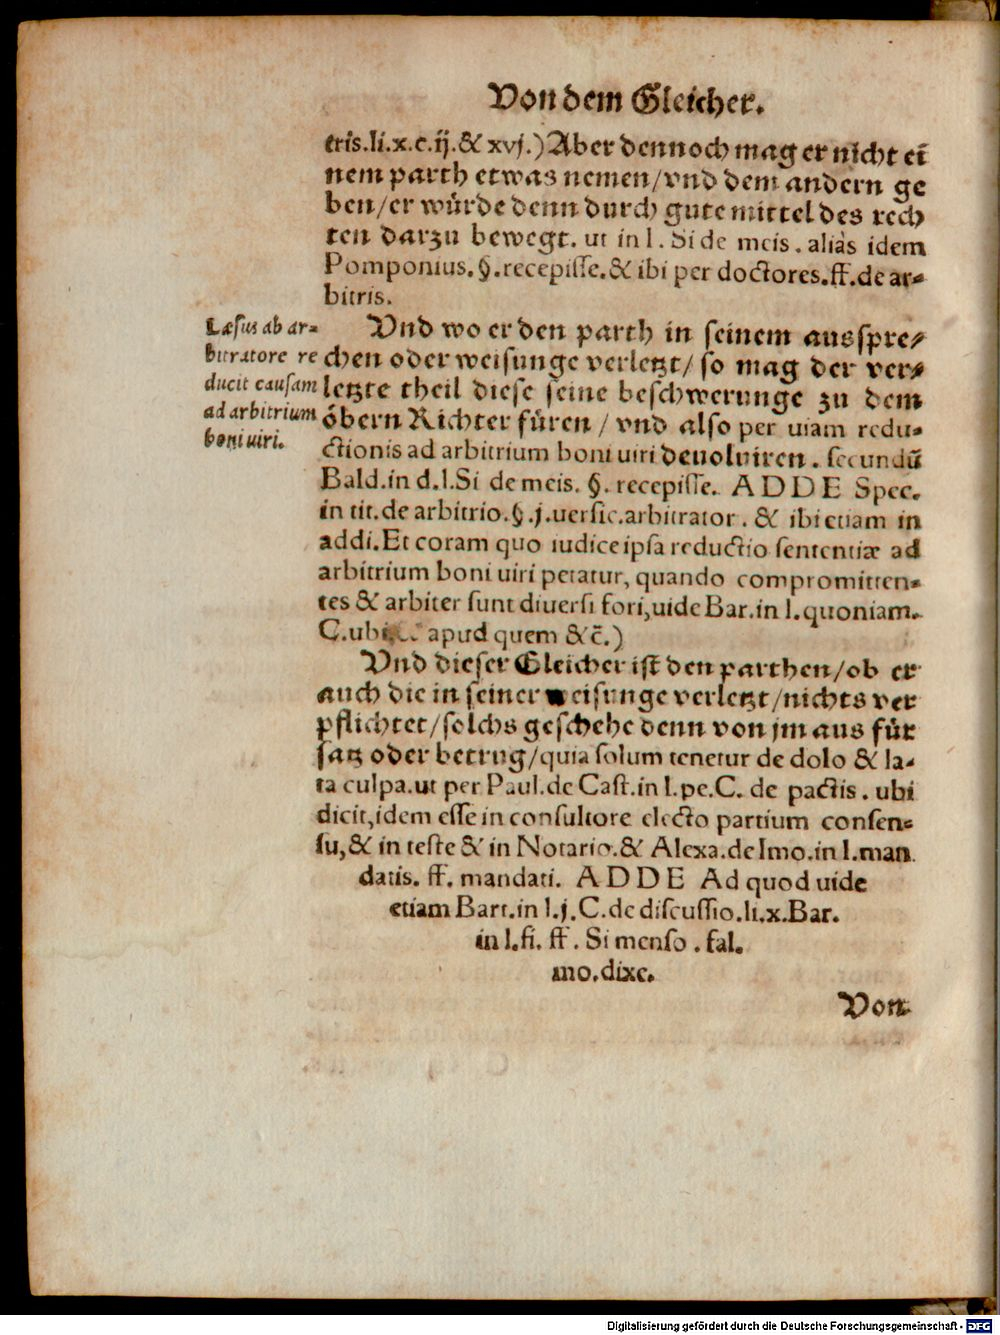 Von dem Gleicher.
tris.li.x.c.ij.& xvj.) Aber dennoch mag er nicht eī
nem parth etwas nemen/vnd dem andern ge
ben/er wuͤrde denn durch gute mittel des rech
ten darzu bewegt. ut in l. Si de meis. aliàs idem
Pomponius.§.recepisse.& ibi per doctores.ff.de ar-
bitris.
Læsus ab ar-
bitratore re
ducit causam
ad arbitrium
boni uiri.
Vnd wo er den parth in seinem ausspre/
chen oder weisunge verletzt/ so mag der ver/
letzte theil diese seine beschwerunge zu dem
oͤbern Richter fuͤren / vnd also per uiam redu-
ctionis ad arbitrium boni uiri deuoluiren. secundū
Bald.in d.l.Si de meis. §. recepisse. ADDE Spec.
in tit.de arbitrio.§.j.uersic.arbitrator. & ibi etiam in
addi.Et coram quo iudice ipsa reductio sententiæ ad
arbitrium boni uiri petatur, quando compromitten-
tes & arbiter sunt diuersi fori,uide Bar.in l.quoniam.
C.ubi apud quem &c̄.)
Vnd dieser Gleicher ist den parthen/ob er
auch die in seiner weisunge verletzt/nichts ver
pflichtet/solchs geschehe denn von jm aus fuͤr
satz oder betrug/quia solum tenetur de dolo & la-
ta culpa.ut per Paul.de Cast.in l.pe.C. de pactis. ubi
dicit,idem esse in consultore electo partium consen-
su,& in teste & in Notario.& Alexa.de Imo.in l.man
datis. ff. mandati. ADDE Ad quod uide
etiam Bart.in l.j.C.de discussio.li.x.Bar.
in l.fi. ff. Si menso. fal.
mo.dixe.
Von
Digitalisierung gefördert durch die Deutsche Forschungsgemeinschaft - DFG